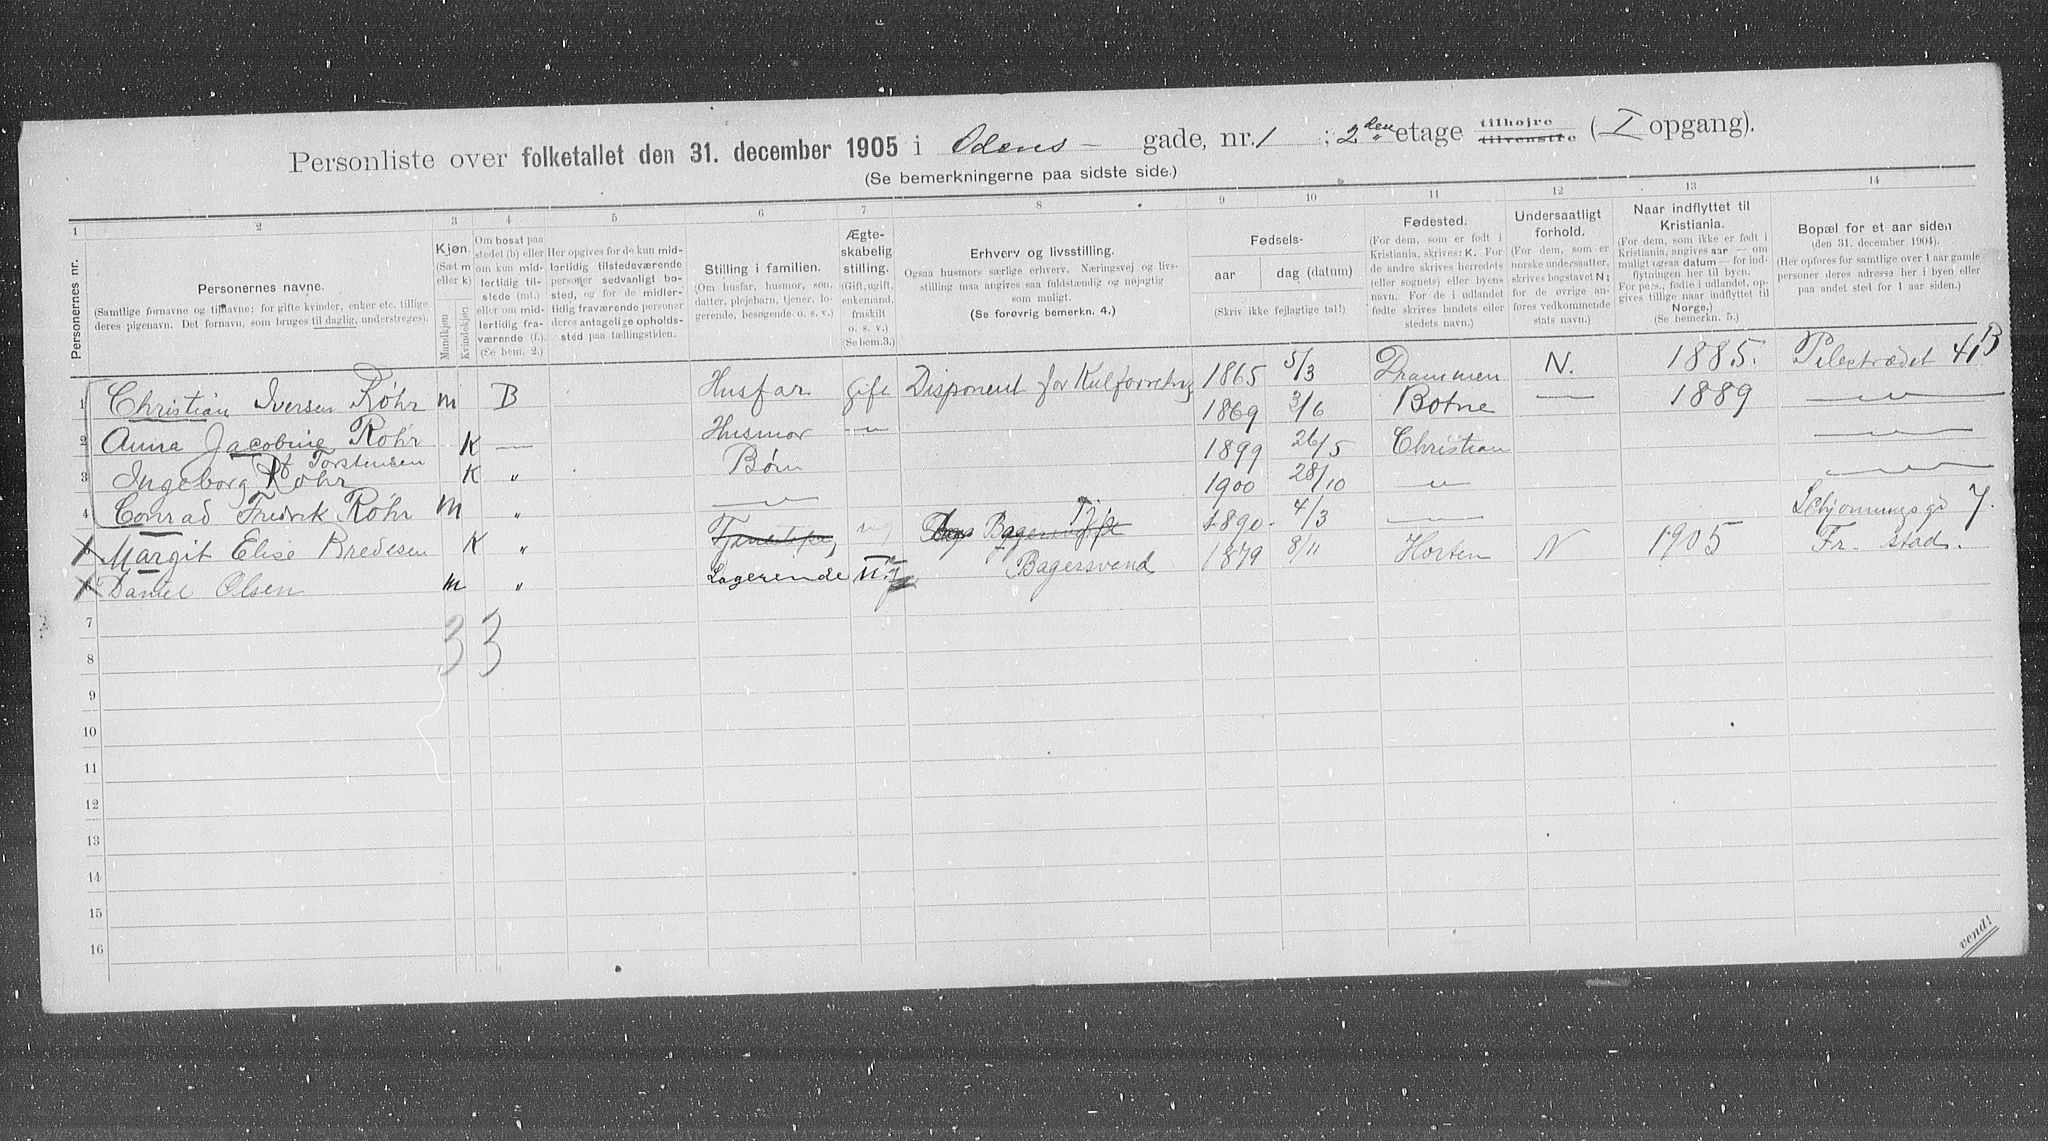 Personliste over folketallet den 31. december 1905 i Odens - gade, nr. 1 ; 2 den etage tilhøjre tilvenstre ( I opgang).
(Se bemerkningerne paa sidste side.)
1 2 3 4 5 6 7 8 9 10 11 12 13 14
Personernes nr.
Personernes navne.
(Samtlige fornavne og tilnavne; for gifte kvinder, enker etc. tillige deres pigenavn. Det fornavn, som bruges til daglig, understreges).
Kjøn
(Sæt m eller k)
Mandkjøn
Kvindekjøn
Om bosat paa stedet (b) eller om kun midlertidig tilstede (mt.) eller om midlertidig fraværende (f.). (Se bem. 2.)
Her opgives for de kun midlertidig tilstedeværende personer sedvanligt bosted, og for de midlertidig fraværende personer deres antagelige opholdssted paa tællingstiden.
Stilling i familien.
(Om husfar, husmor, søn, datter, plejebarn, tjener, logerende, besøgende o. s. v.)
Ægteskabelig stilling.
(Gift, ugift, enkemand, fraskilt o. s. v.) (Se bem. 3.)
Erhverv og livsstilling.
Ogsaa husmors særlige erhverv. Næringsvej og livsstilling maa angives saa fuldstændig og nøjagtig som muligt.
(Se forøvrig bemerkn. 4.)
Fødsels-
aar dag (datum)
(Skriv ikke fejlagtige tal!)
Fødested.
(For dem, som er født i Kristiania, skrives: K. For de andre skrives herredets (eller sognets) eller byens navn. For de i udlandet fødte skrives landets eller stedets navn.)
Undersaatligt forhold.
(For dem, som er norske undersaatter, skrives bogstavet N; for de øvrige anføres vedkommende stats navn.)
Naar indflyttet til Kristiania.
(For dem, som ikke er født i Kristiania, angives aar — om muligt ogsaa datum — for indflytningen her til byen. For pers., fødte i udlandet, opgives tillige naar indflyttet til Norge.)
(Se bemerkn. 5.)
Bopæl for et aar siden
(den 31. december 1904).
(Her opføres for samtlige over 1 aar gamle personer deres adresse her i byen eller paa andet sted for 1 aar siden.)
1 Christian Iversen Röhr m B Husfar gift Disponent for Kulforretn. 1865 5/3 Drammen N. 1885. Pilestrædet 41 B
2 Anna Jacobine Röhr K — Husmor — " — 1869 3/6 Botne — 1889 — " —
f Torstensen
3 Ingeborg Röhr K " Børn 1899 26/5 Christian — " —
4 Conrad Fredrik Röhr m " — " — 1900 28/10 — " — — " —
5 Margit Elise Bredesen K " Tjenestepige ug Tjp 1890 4/3 — Schjønningsgd 7.
6 Daniel Olsen m " Logerende Bagersvend 1879 8/11 Horten N 1905 Fr. stad.
7
3 3
8
9
10
11
12
13
14
15
16
vend!